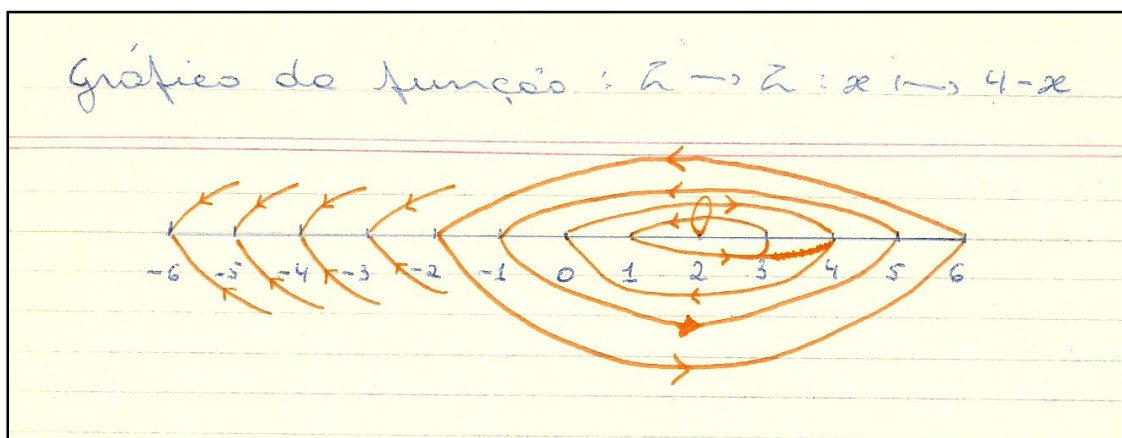 Gráfico da função : Z → Z : x ↦ 4-x
-6 -5 -4 -3 -2 -1 0 1 2 3 4 5 6